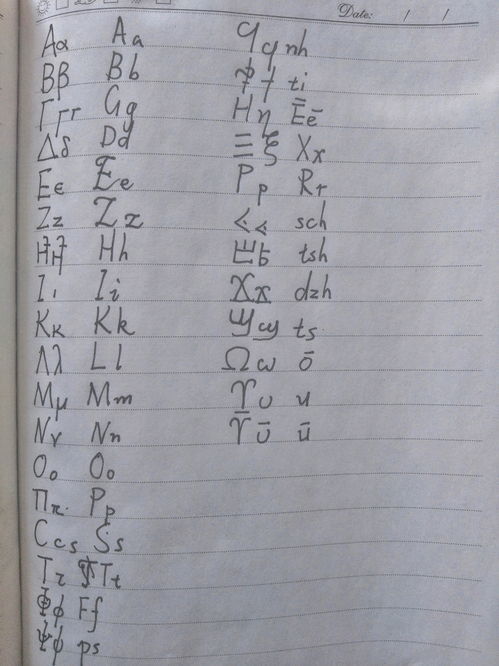 Date: / /
Αα Aa
Ββ Bb
Γγr Gg
Δδ Dd
Εϵ Ee
Ζz Zz
Hh
Ιι Ii
Κκ Kk
Λλ Ll
Μμ Mm
Νν Nn
Οο Oo
Ππ Pp
Ccs Ss
Ττ Tt
Φϕ Ff
Ψψ ps
Ϥϥ nh
ti
Ηη Ēē
Ξξ Xx
Ρρ Rr
sch
tsh
Χx dzh
ts
Ωω ō
ϒυ u
ϒ̄ῡ ū